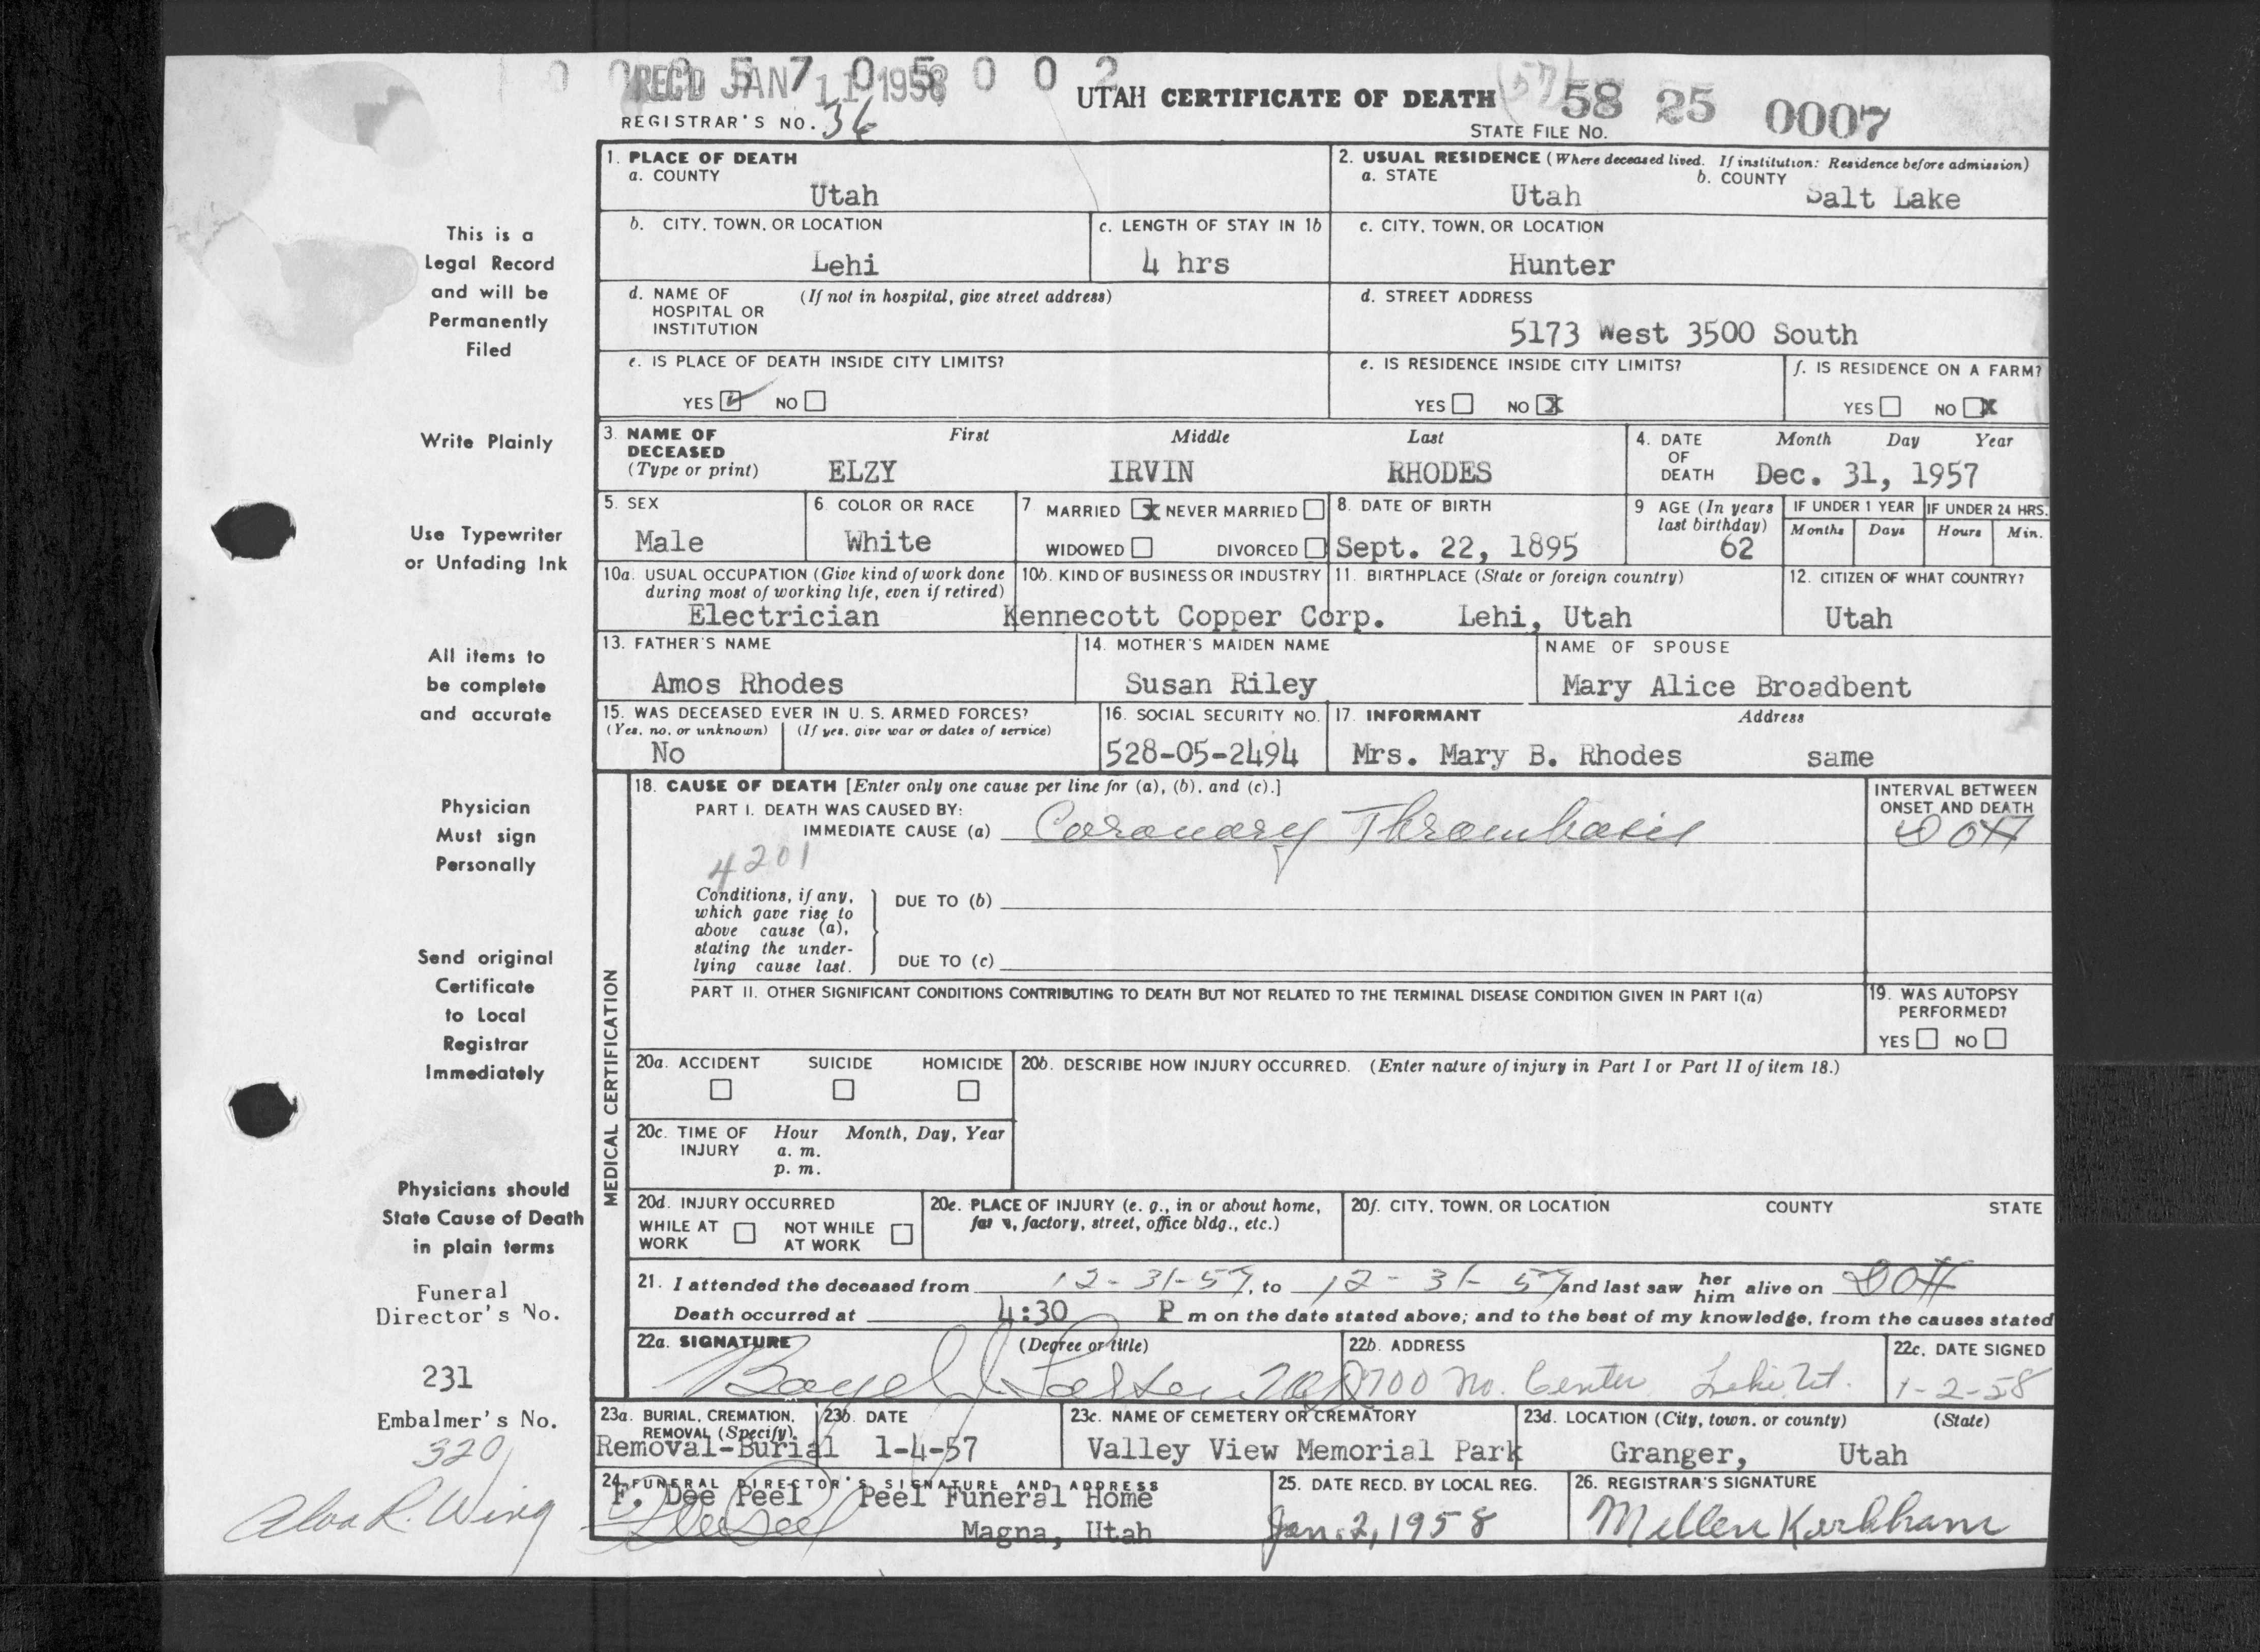 0 0 0 5 7 0 5 0 0 2
REC'D JAN 11 1958
UTAH CERTIFICATE OF DEATH
(57) 58 25 0007
REGISTRAR'S NO. 36
STATE FILE NO.
This is a
Legal Record
and will be
Permanently
Filed
Write Plainly
Use Typewriter
or Unfading Ink
All items to
be complete
and accurate
Physician
Must sign
Personally
Send original
Certificate
to Local
Registrar
Immediately
Physicians should
State Cause of Death
in plain terms
Funeral
Director's No.
231
Embalmer's No.
320
Alva R. Wing
1. PLACE OF DEATH
a. COUNTY
Utah
2. USUAL RESIDENCE (Where deceased lived. If institution: Residence before admission)
a. STATE b. COUNTY
Utah Salt Lake
b. CITY, TOWN, OR LOCATION
Lehi
c. LENGTH OF STAY IN 1b
4 hrs
c. CITY, TOWN, OR LOCATION
Hunter
d. NAME OF (If not in hospital, give street address)
HOSPITAL OR
INSTITUTION
d. STREET ADDRESS
5173 West 3500 South
e. IS PLACE OF DEATH INSIDE CITY LIMITS?
YES NO
e. IS RESIDENCE INSIDE CITY LIMITS?
YES NO X
f. IS RESIDENCE ON A FARM?
YES NO X
3. NAME OF First Middle Last
DECEASED
(Type or print) ELZY IRVIN RHODES
4. DATE Month Day Year
OF
DEATH Dec. 31, 1957
5. SEX
Male
6. COLOR OR RACE
White
7. MARRIED X NEVER MARRIED
WIDOWED DIVORCED
8. DATE OF BIRTH
Sept. 22, 1895
9 AGE (In years
last birthday)
62
IF UNDER 1 YEAR
Months Days
IF UNDER 24 HRS.
Hours Min.
10a. USUAL OCCUPATION (Give kind of work done
during most of working life, even if retired)
Electrician
10b. KIND OF BUSINESS OR INDUSTRY
Kennecott Copper Corp.
11. BIRTHPLACE (State or foreign country)
Lehi, Utah
12. CITIZEN OF WHAT COUNTRY?
Utah
13. FATHER'S NAME
Amos Rhodes
14. MOTHER'S MAIDEN NAME
Susan Riley
NAME OF SPOUSE
Mary Alice Broadbent
15. WAS DECEASED EVER IN U. S. ARMED FORCES?
(Yes, no, or unknown) (If yes, give war or dates of service)
No
16. SOCIAL SECURITY NO.
528-05-2494
17. INFORMANT Address
Mrs. Mary B. Rhodes same
MEDICAL CERTIFICATION
18. CAUSE OF DEATH [Enter only one cause per line for (a), (b), and (c).]
PART I. DEATH WAS CAUSED BY:
IMMEDIATE CAUSE (a) Coronary Thrombosis
INTERVAL BETWEEN
ONSET AND DEATH
4201
Conditions, if any,
which gave rise to
above cause (a),
stating the under-
lying cause last.
DUE TO (b)
DUE TO (c)
PART II. OTHER SIGNIFICANT CONDITIONS CONTRIBUTING TO DEATH BUT NOT RELATED TO THE TERMINAL DISEASE CONDITION GIVEN IN PART I(a)
19. WAS AUTOPSY
PERFORMED?
YES NO
20a. ACCIDENT SUICIDE HOMICIDE
20b. DESCRIBE HOW INJURY OCCURRED. (Enter nature of injury in Part I or Part II of item 18.)
20c. TIME OF Hour Month, Day, Year
INJURY a. m.
p. m.
20d. INJURY OCCURRED
WHILE AT NOT WHILE
WORK AT WORK
20e. PLACE OF INJURY (e. g., in or about home,
factory, street, office bldg., etc.)
20f. CITY, TOWN, OR LOCATION COUNTY STATE
21. I attended the deceased from 12-31-57, to 12-31-57 and last saw her him alive on
Death occurred at 4:30 P m on the date stated above; and to the best of my knowledge, from the causes stated
22a. SIGNATURE (Degree or title)
Boyd J. Larsen MD
22b. ADDRESS
700 No. Center Lehi Ut.
22c. DATE SIGNED
1-2-58
23a. BURIAL, CREMATION,
REMOVAL (Specify)
Removal-Burial
23b. DATE
1-4-57
23c. NAME OF CEMETERY OR CREMATORY
Valley View Memorial Park
23d. LOCATION (City, town, or county) (State)
Granger, Utah
24. FUNERAL DIRECTOR'S SIGNATURE AND ADDRESS
F. Dee Peel Peel Funeral Home
Magna, Utah
25. DATE RECD. BY LOCAL REG.
Jan. 2, 1958
26. REGISTRAR'S SIGNATURE
Mellen Kirkham